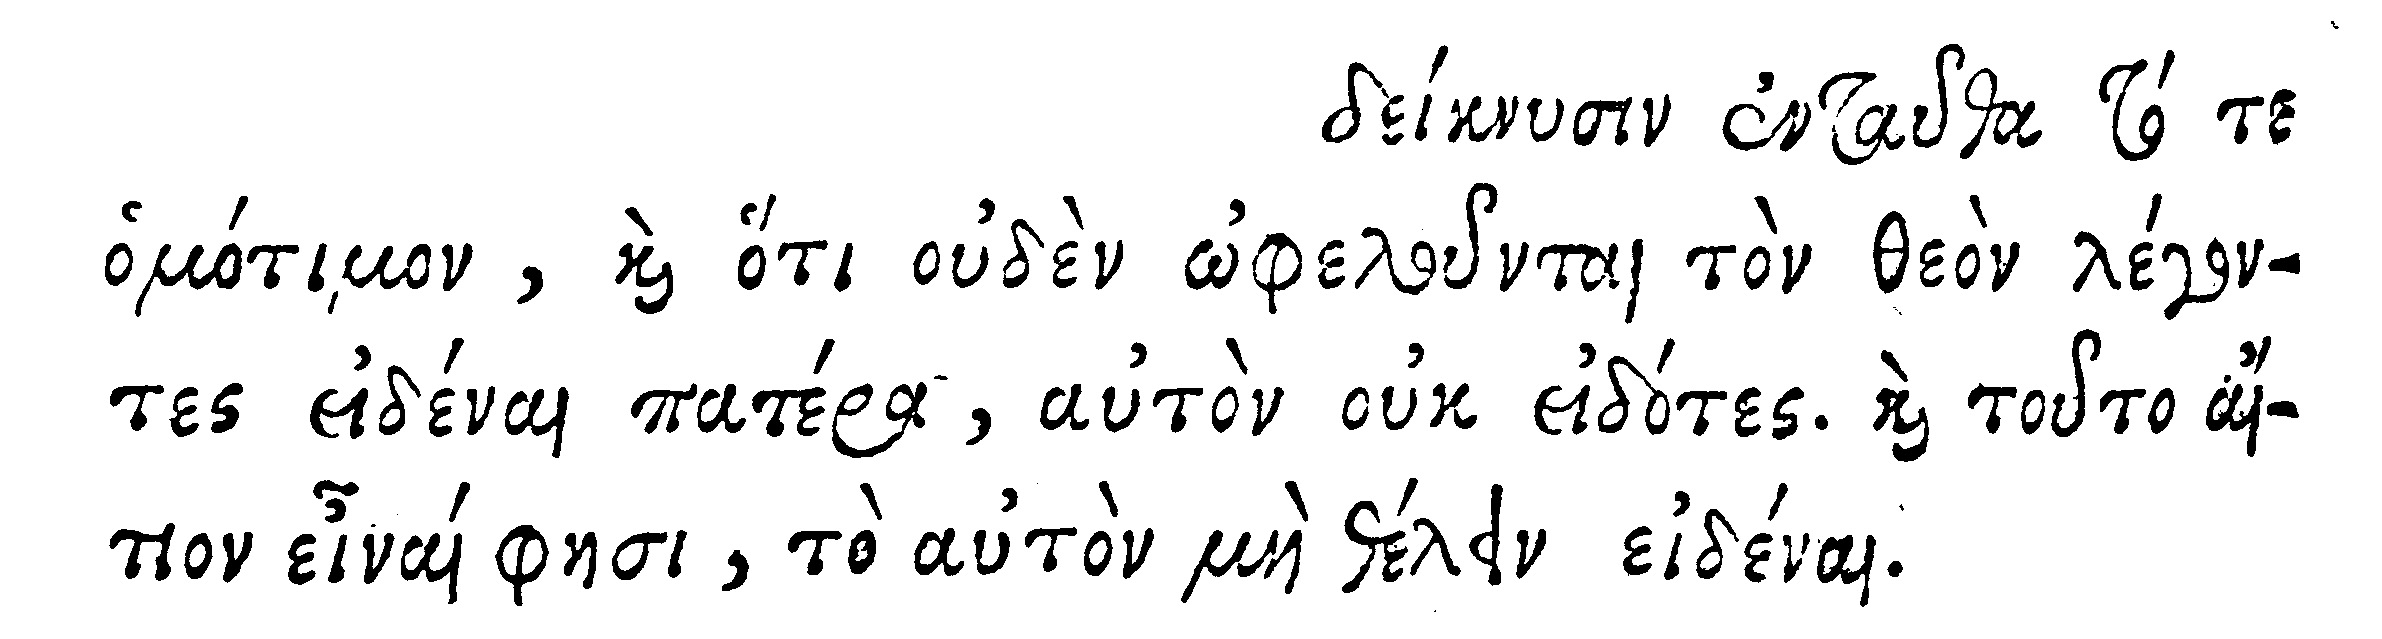 δείκνυσιν ἐνταῦθα τό τε
ὁμότιμον, καὶ ὅτι οὐδὲν ὠφελοῦνται τὸν θεὸν λέγον-
τες εἰδέναι πατέρα, αὐτὸν οὐκ εἰδότες. καὶ τοῦτο αἴ-
τιον εἶναί φησι, τὸ αὐτὸν μὴ θέλειν εἰδέναι.